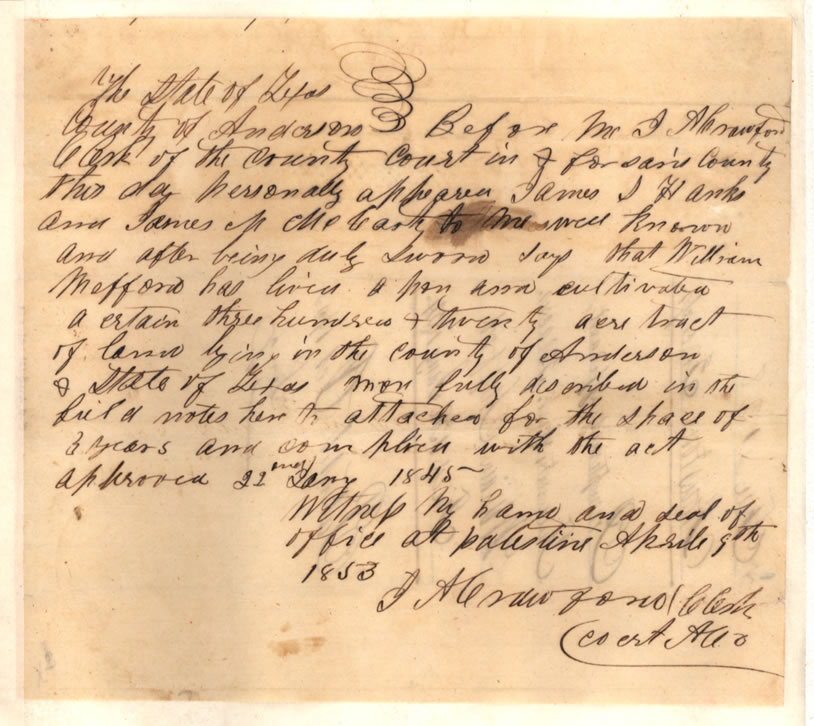 The State of Texas
County of Anderson Before Me J A Crawford
Clerk of the County Court in & for said County
this day personally appeared James J Hanks
and James M McCarty to me well known
and after being duly Sworn says that William
Mefford has lived a pon and cultivated
a certain three hundred & twenty acre tract
of land lying in the county of Anderson
& State of Texas more fully described in the
field notes here to attached for the space of
3 years and complied with the act
approved 22nd Jany 1845
Witness My hand and seal of
office at palestine Aprile 9th
1853
J A Crawford Clerk
co crt A Co